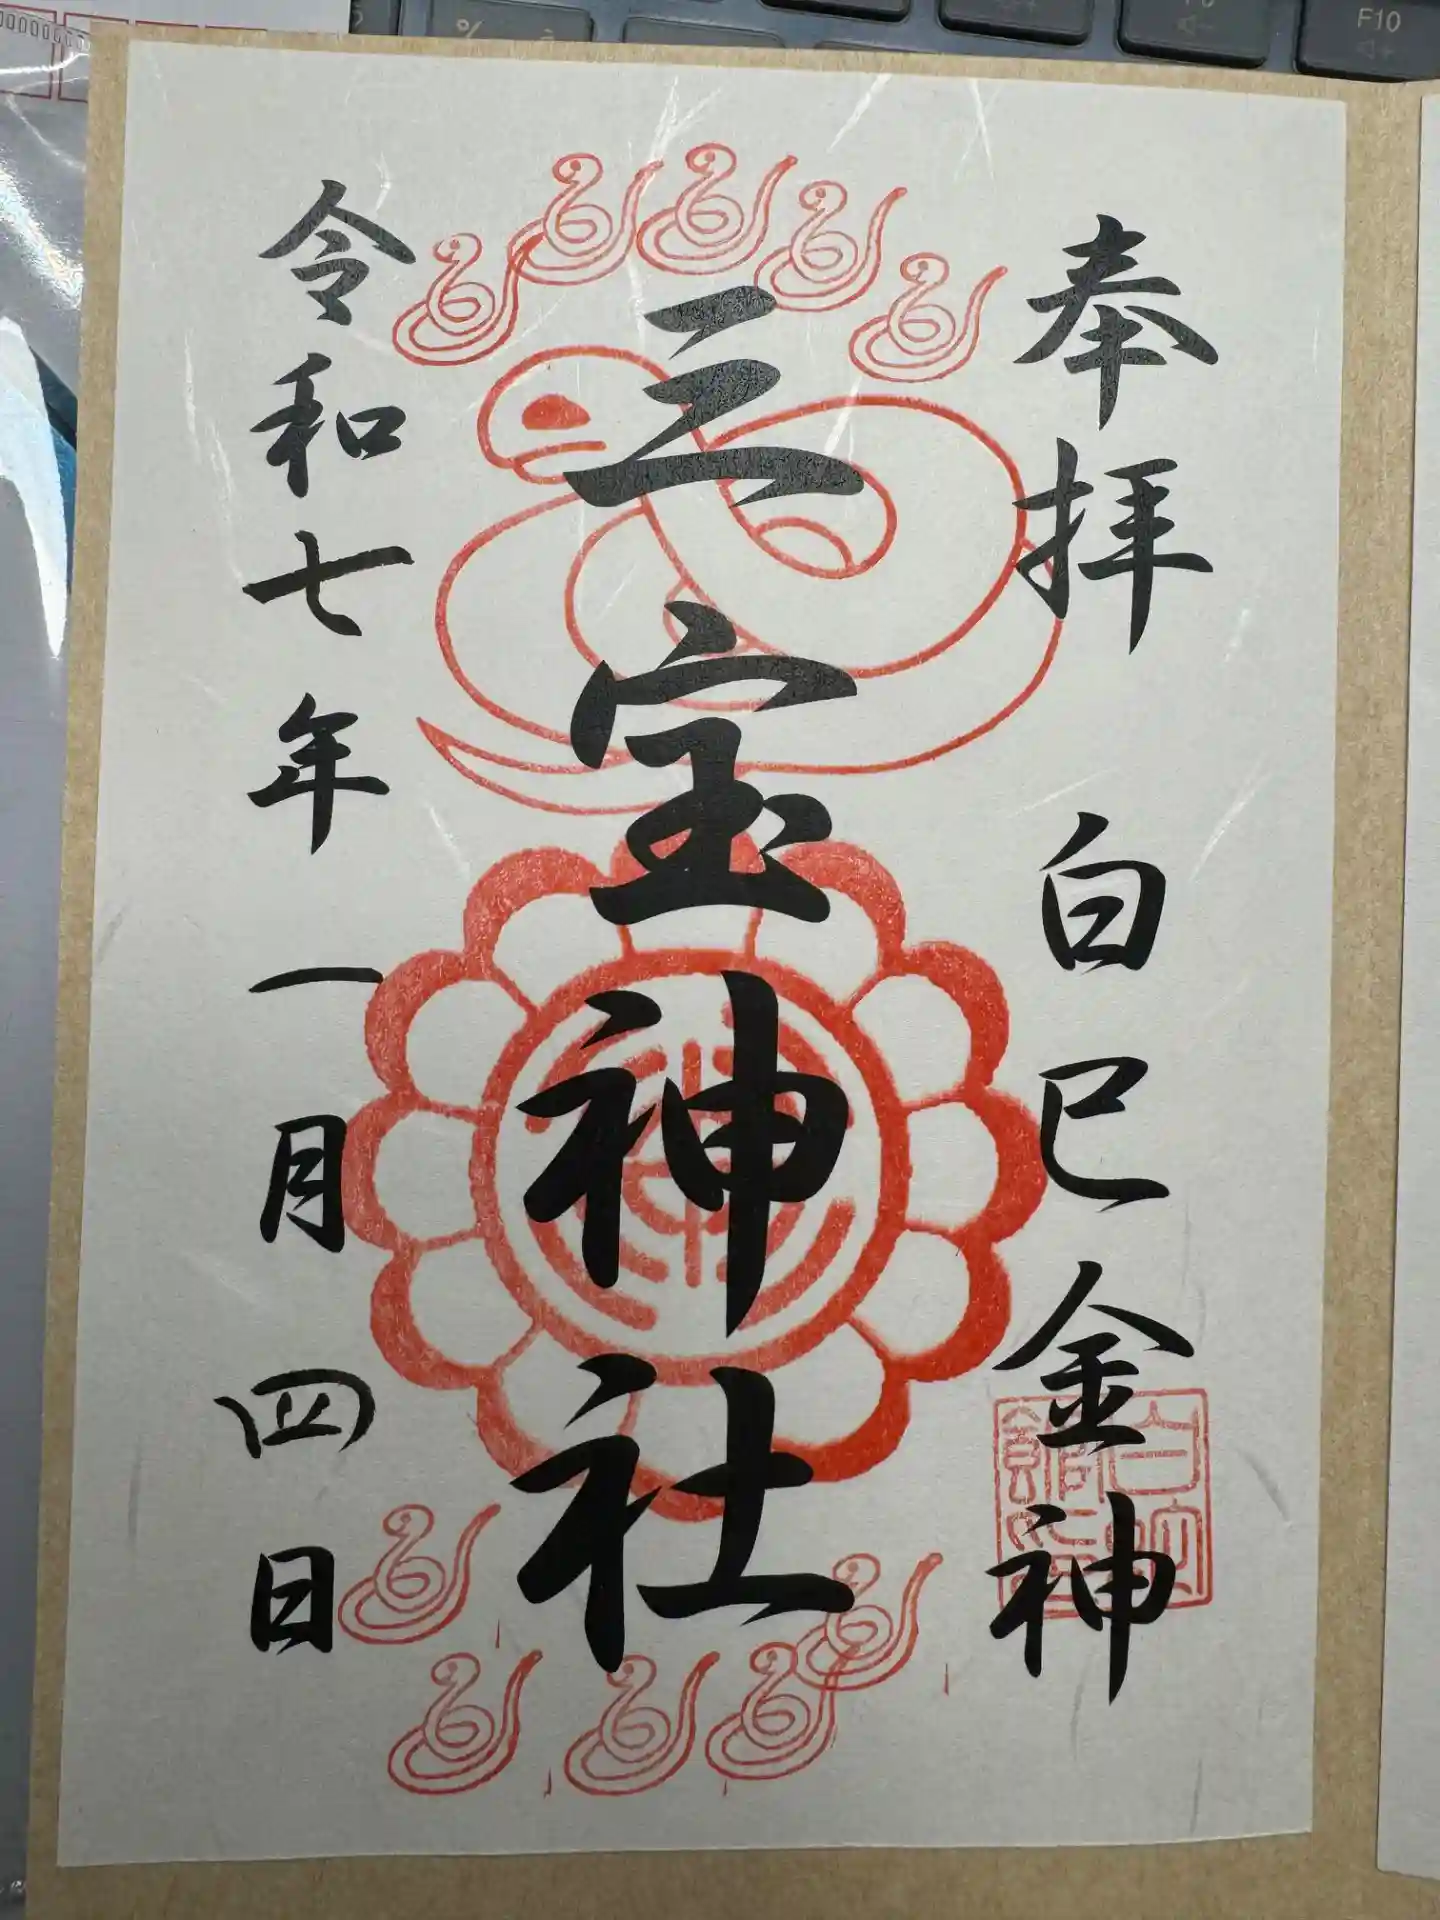 奉拝 白巳金神
三宝神社
令和七年一月四日
F10